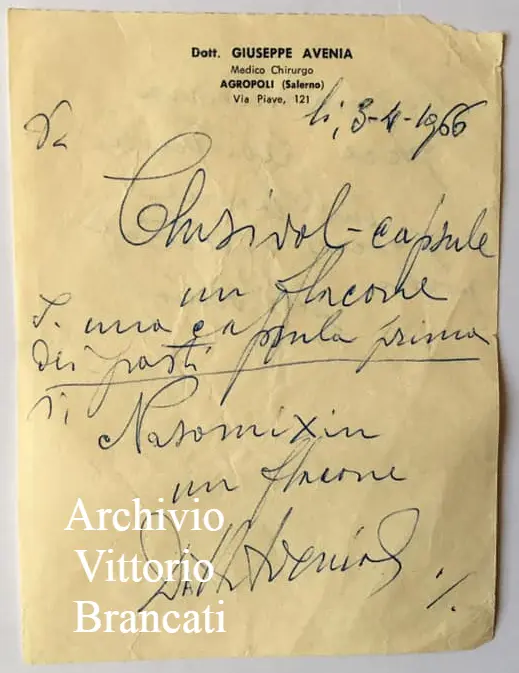 Dott. GIUSEPPE AVENIA
Medico Chirurgo
AGROPOLI (Salerno)
Via Piave, 121
li, 3-4-1966
capsule
un flacone
S. una capsula prima
dei pasti
Nasomixin
un flacone
Dott. Avenia
Archivio
Vittorio
Brancati